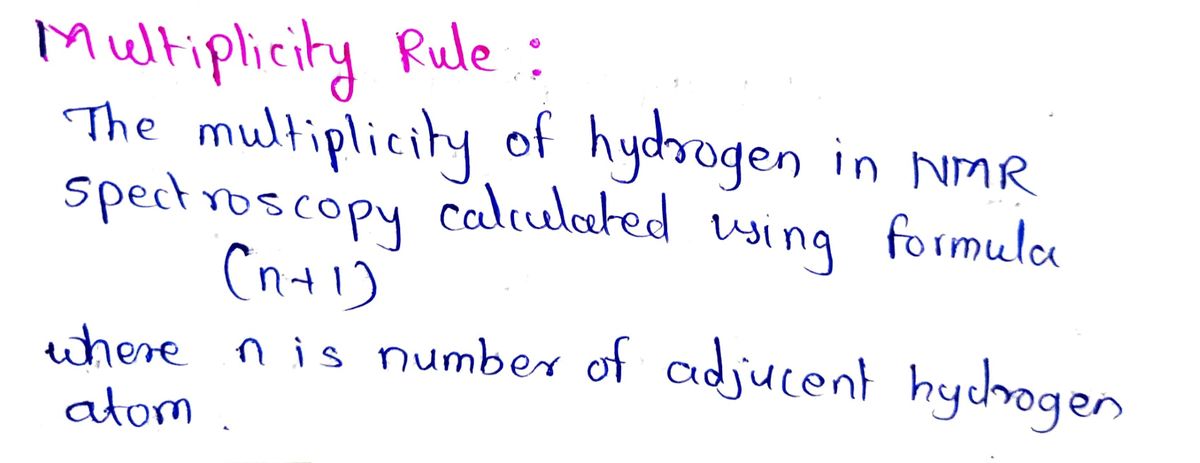 Multiplicity Rule :
The multiplicity of hydrogen in NMR
spectroscopy calculated using formula
(n+1)
where n is number of adjucent hydrogen
atom .